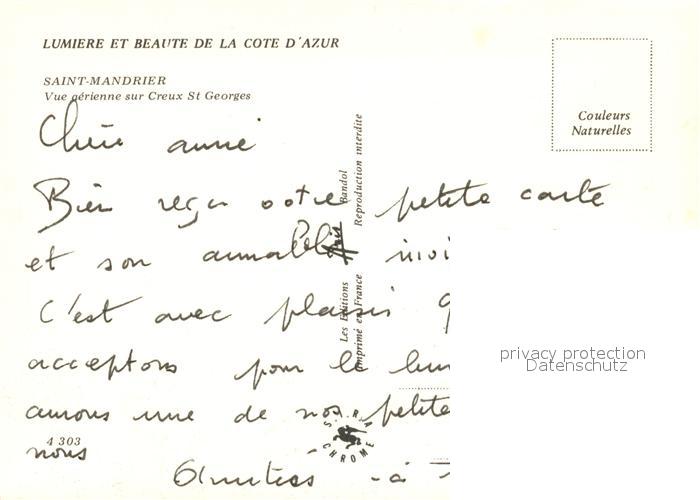 LUMIERE ET BEAUTE DE LA COTE D'AZUR
SAINT-MANDRIER
Vue aérienne sur Creux St Georges
Couleurs
Naturelles
Bandol
Reproduction interdite
Les Editions
Imprimé en France
Bien reçu votre petite carte
et son
C'est avec plaisir
acceptons pour le
aurons une de nos petite
4 303
nous
Amitiés à
CHROME
privacy protection
Datenschutz